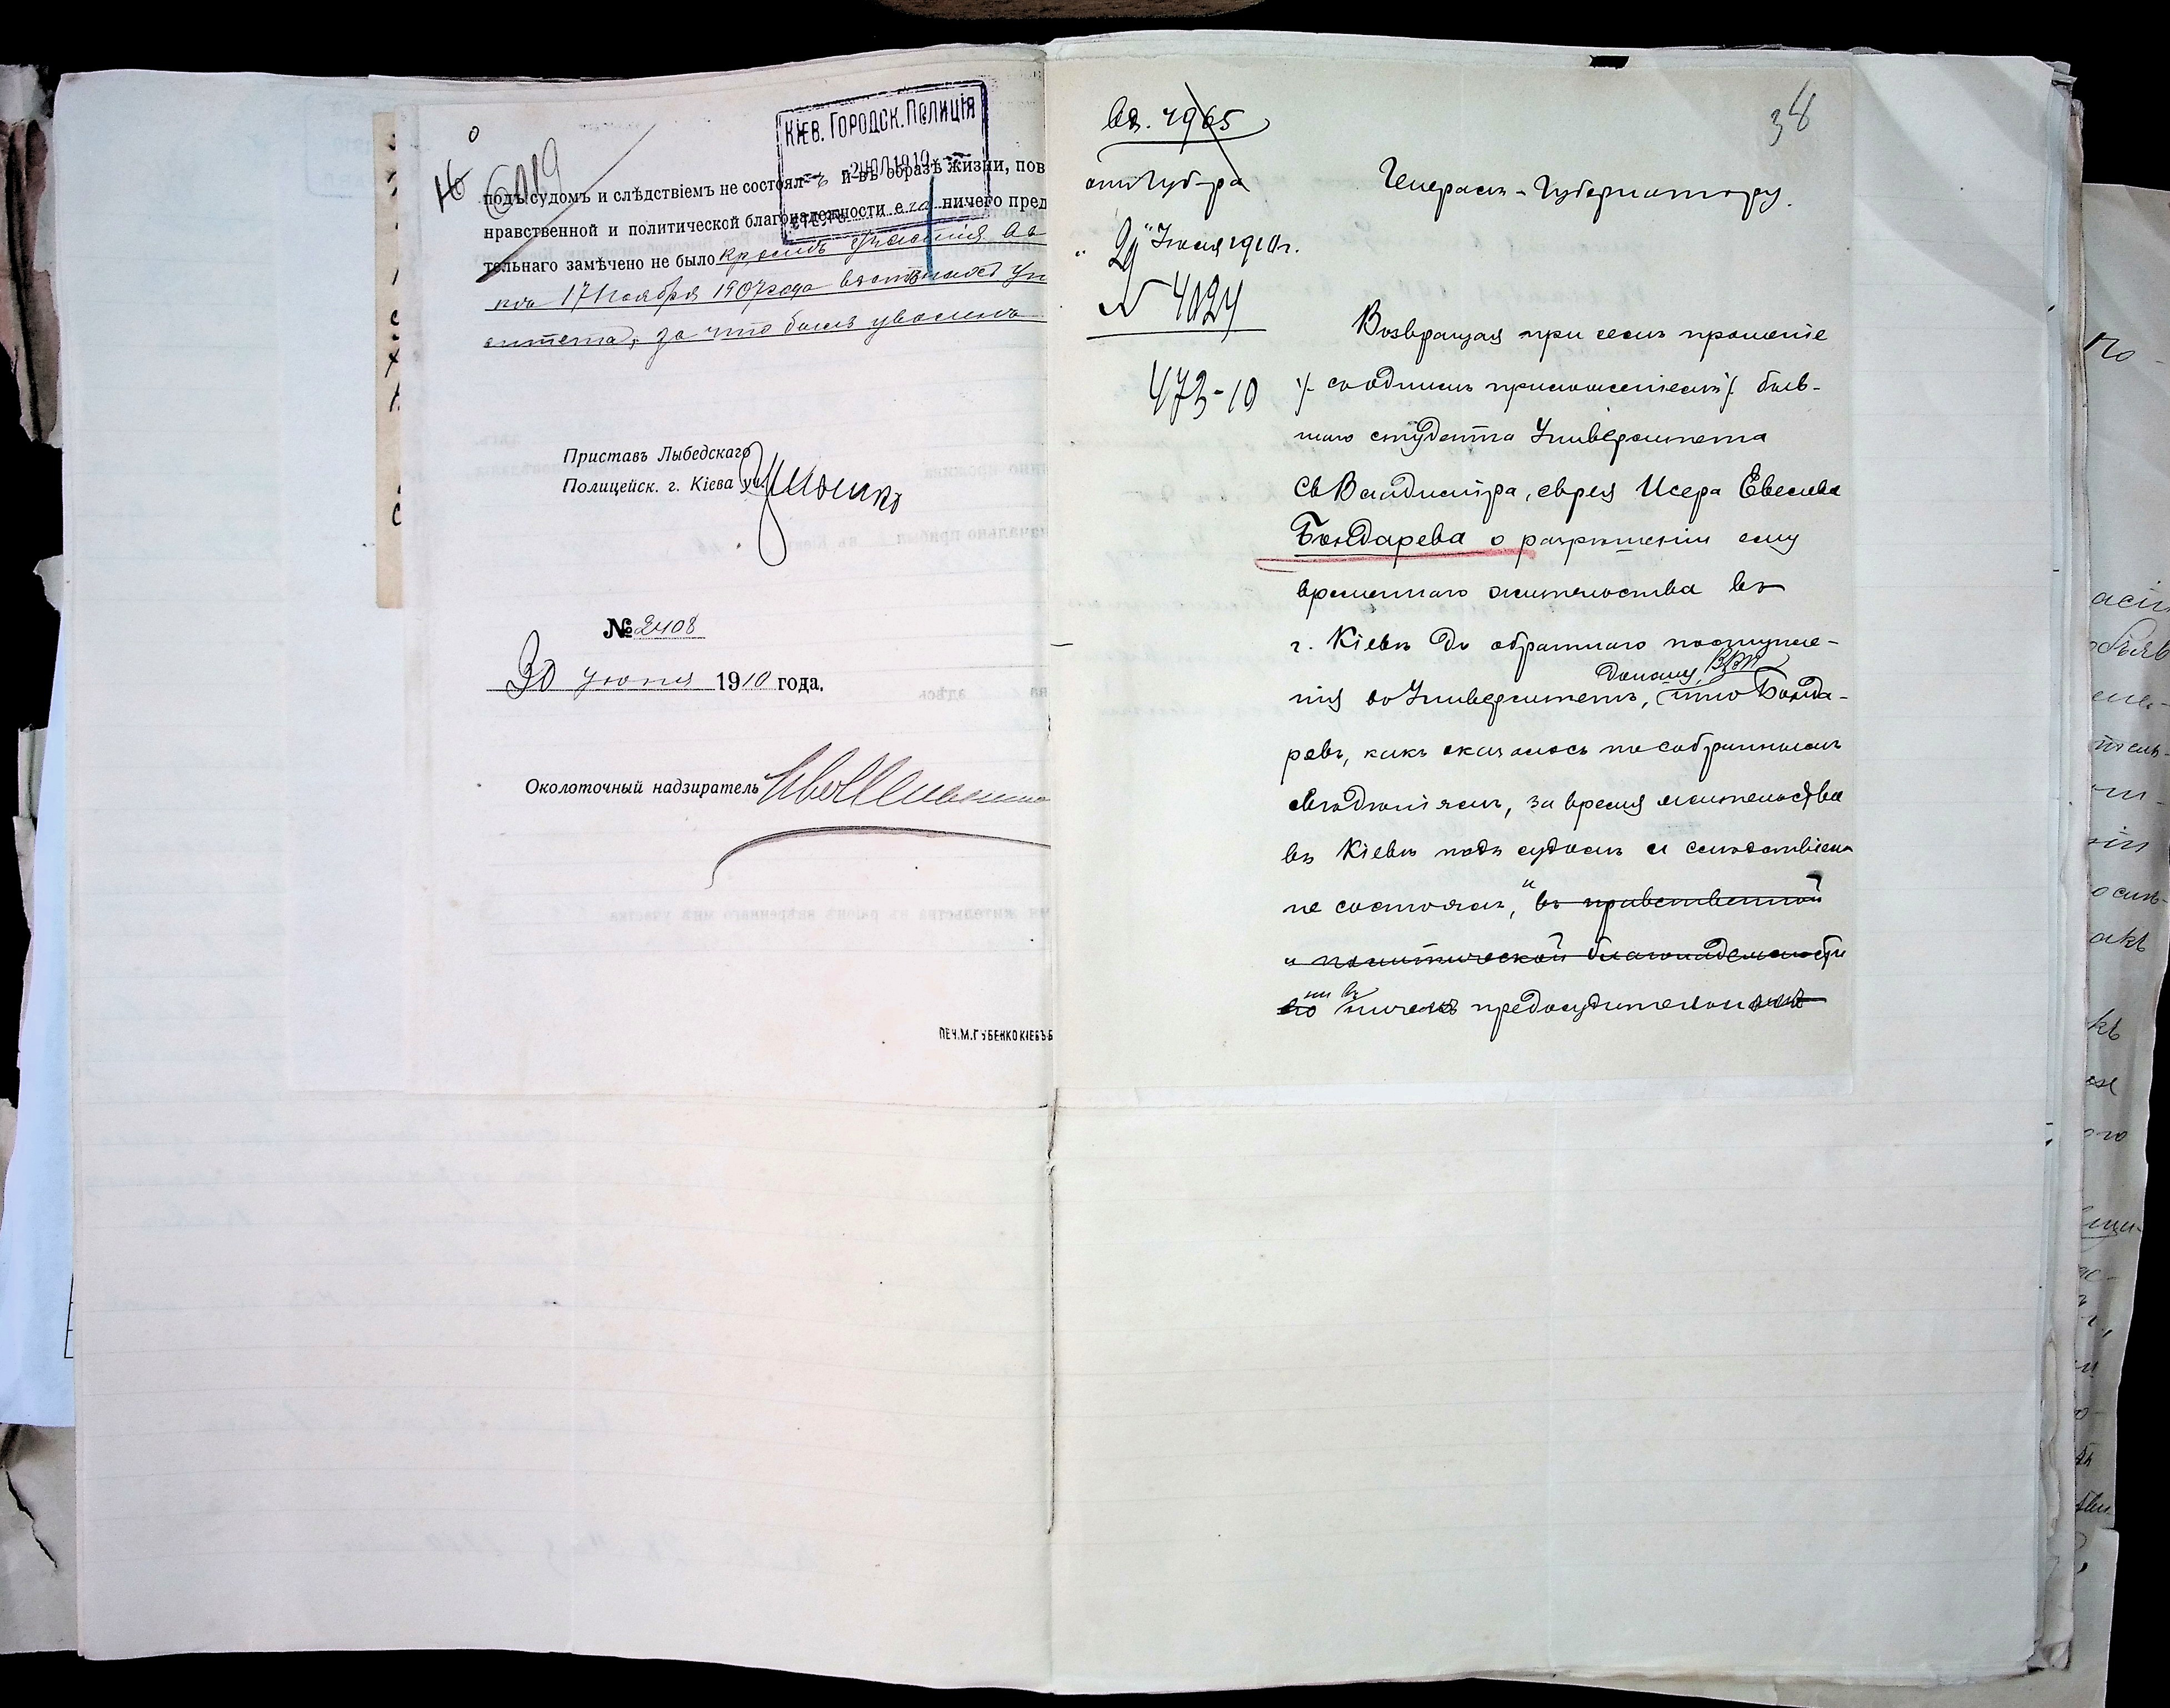 КІЕВ. ГОРОДСК. ПОЛИЦІЯ
6019
подъ судомъ и слѣдствіемъ не состоялъ и въ образѣ жизни, пов
нравственной и политической благонадежности его ничего пред
тельнаго замѣчено не было кромѣ участія въ
17 Ноября 1907 года Ун
ситета, за что былъ уволенъ
Приставъ Лыбедскаго
Полицейск. г. Кіева уч.
№ 2408
30 Іюня 1910 года.
Околоточный надзиратель
ПЕЧ. М. ГУБЕНКО КІЕВЪ Б
38
вх. 4965
отъ Губ-ра
Генералъ-Губернатору.
"29" Іюля 1910 г.
N 4024
473-10
Возвращая при семъ прошеніе
/. съ однимъ приложеніемъ ./ быв-
шаго студента Университета
Св Владиміра, еврея Исера Евелева
Бондарева о разрѣшеніи ему
временнаго жительства въ
г. Кіевѣ до обратнаго поступле-
доношу ВВП
нія въ Университетъ, что Бонда-
ревъ, какъ оказалось по собраннымъ
свѣдѣніямъ, за время жительства
въ Кіевѣ подъ судомъ и слѣдствіемъ
не состоялъ, и въ нравственной
и политической благонадежности
его ни въ чемъ предосудительном